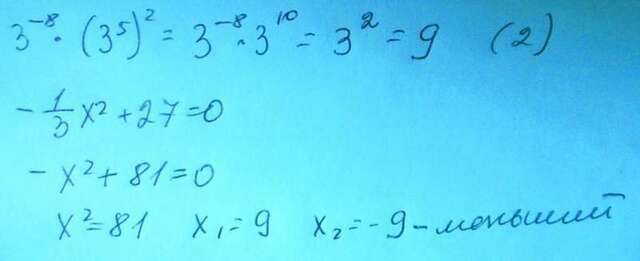 3⁻⁸ · (3⁵)² = 3⁻⁸ · 3¹⁰ = 3² = 9 (2)
- 1/3 x² + 27 = 0
- x² + 81 = 0
x² = 81 x₁ = 9 x₂ = -9 - меньший